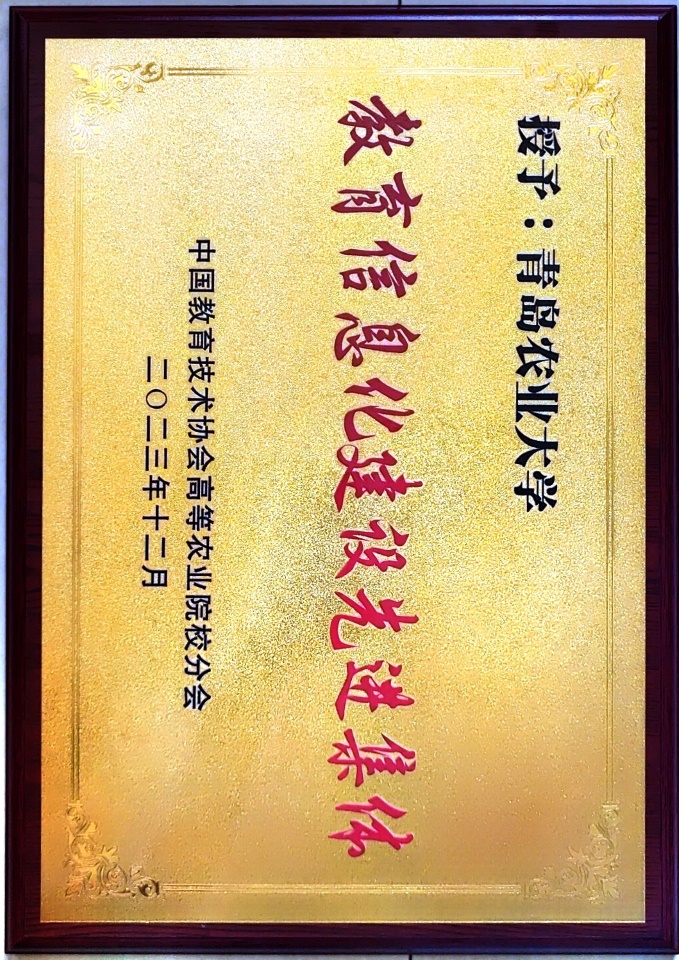 授予：青岛农业大学
教育信息化建设先进集体
中国教育技术协会高等农业院校分会
二〇二三年十二月